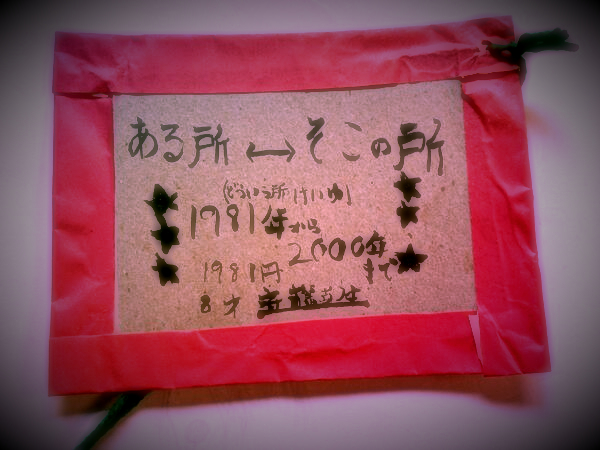 ある所↔そこの所
(どういう所けいゆ)
1981年から
2000年まで
1981円
8才